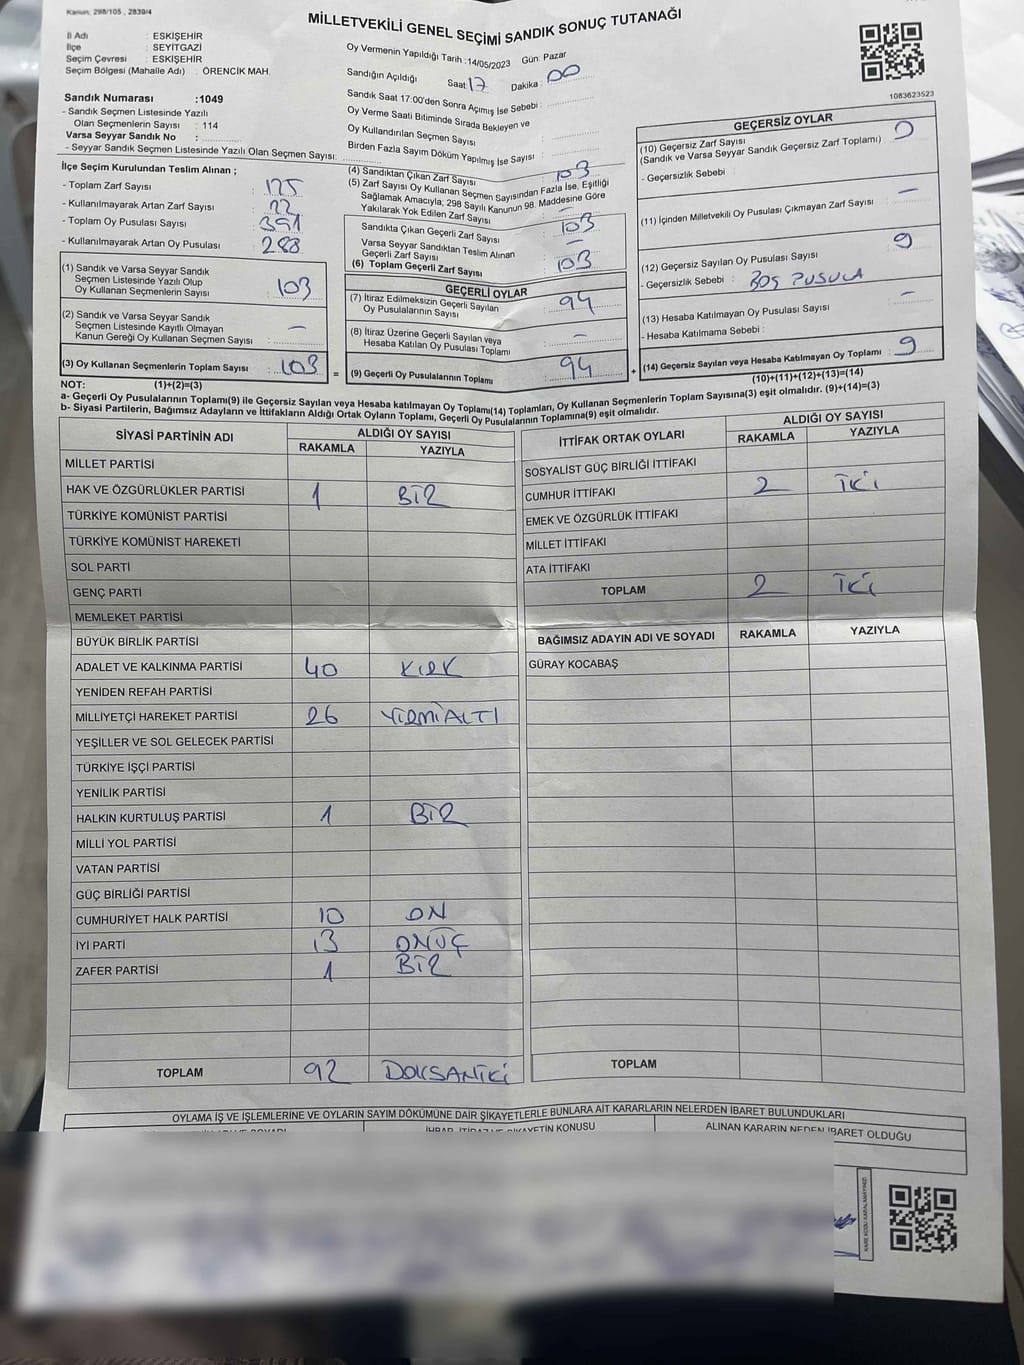 Kanun, 298/105 , 2839/4
MİLLETVEKİLİ GENEL SEÇİMİ SANDIK SONUÇ TUTANAĞI
İl Adı : ESKİŞEHİR
İlçe : SEYİTGAZİ
Seçim Çevresi : ESKİŞEHİR
Seçim Bölgesi (Mahalle Adı) : ÖRENCİK MAH.
Sandık Numarası :1049
- Sandık Seçmen Listesinde Yazılı
Olan Seçmenlerin Sayısı : 114
Varsa Seyyar Sandık No :
- Seyyar Sandık Seçmen Listesinde Yazılı Olan Seçmen Sayısı:
Oy Vermenin Yapıldığı Tarih :14/05/2023 Gün: Pazar
Sandığın Açıldığı Saat: 17 Dakika : 00
Sandık Saat 17:00'den Sonra Açımış İse Sebebi :
Oy Verme Saati Bitiminde Sırada Bekleyen ve
Oy Kullandırılan Seçmen Sayısı :
Birden Fazla Sayım Döküm Yapılmış İse Sayısı :
1083623523
İlçe Seçim Kurulundan Teslim Alınan ;
- Toplam Zarf Sayısı : 125
- Kullanılmayarak Artan Zarf Sayısı : 22
- Toplam Oy Pusulası Sayısı : 391
- Kullanılmayarak Artan Oy Pusulası : 288
(1) Sandık ve Varsa Seyyar Sandık
Seçmen Listesinde Yazılı Olup
Oy Kullanan Seçmenlerin Sayısı : 103
(2) Sandık ve Varsa Seyyar Sandık
Seçmen Listesinde Kayıtlı Olmayan
Kanun Gereği Oy Kullanan Seçmen Sayısı : –
(3) Oy Kullanan Seçmenlerin Toplam Sayısı : 103 =
(4) Sandıktan Çıkan Zarf Sayısı : 103
(5) Zarf Sayısı Oy Kullanan Seçmen Sayısından Fazla İse, Eşitliği
Sağlamak Amacıyla; 298 Sayılı Kanunun 98. Maddesine Göre
Yakılarak Yok Edilen Zarf Sayısı : –
Sandıkta Çıkan Geçerli Zarf Sayısı : 103
Varsa Seyyar Sandıktan Teslim Alınan
Geçerli Zarf Sayısı : –
(6) Toplam Geçerli Zarf Sayısı : 103
GEÇERLİ OYLAR
(7) İtiraz Edilmeksizin Geçerli Sayılan
Oy Pusulalarının Sayısı : 94
(8) İtiraz Üzerine Geçerli Sayılan veya
Hesaba Katılan Oy Pusulası Toplamı : –
(9) Geçerli Oy Pusulalarının Toplamı : 94 +
GEÇERSİZ OYLAR
(10) Geçersiz Zarf Sayısı : 0
(Sandık ve Varsa Seyyar Sandık Geçersiz Zarf Toplamı)
- Geçersizlik Sebebi :
(11) İçinden Milletvekili Oy Pusulası Çıkmayan Zarf Sayısı : –
(12) Geçersiz Sayılan Oy Pusulası Sayısı : 9
- Geçersizlik Sebebi : BOŞ PUSULA
(13) Hesaba Katılmayan Oy Pusulası Sayısı : –
- Hesaba Katılmama Sebebi :
(14) Geçersiz Sayılan veya Hesaba Katılmayan Oy Toplamı : 9
(10)+(11)+(12)+(13)=(14)
NOT: (1)+(2)=(3)
a- Geçerli Oy Pusulalarının Toplamı(9) ile Geçersiz Sayılan veya Hesaba katılmayan Oy Toplamı(14) Toplamları, Oy Kullanan Seçmenlerin Toplam Sayısına(3) eşit olmalıdır. (9)+(14)=(3)
b- Siyasi Partilerin, Bağımsız Adayların ve İttifakların Aldığı Ortak Oyların Toplamı, Geçerli Oy Pusulalarının Toplamına(9) eşit olmalıdır.
SİYASİ PARTİNİN ADI ALDIĞI OY SAYISI
RAKAMLA YAZIYLA
MİLLET PARTİSİ
HAK VE ÖZGÜRLÜKLER PARTİSİ 1 BİR
TÜRKİYE KOMÜNİST PARTİSİ
TÜRKİYE KOMÜNİST HAREKETİ
SOL PARTİ
GENÇ PARTİ
MEMLEKET PARTİSİ
BÜYÜK BİRLİK PARTİSİ
ADALET VE KALKINMA PARTİSİ 40 KIRK
YENİDEN REFAH PARTİSİ
MİLLİYETÇİ HAREKET PARTİSİ 26 YİRMİALTI
YEŞİLLER VE SOL GELECEK PARTİSİ
TÜRKİYE İŞÇİ PARTİSİ
YENİLİK PARTİSİ
HALKIN KURTULUŞ PARTİSİ 1 BİR
MİLLİ YOL PARTİSİ
VATAN PARTİSİ
GÜÇ BİRLİĞİ PARTİSİ
CUMHURİYET HALK PARTİSİ 10 ON
İYİ PARTİ 13 ONÜÇ
ZAFER PARTİSİ 1 BİR
TOPLAM 92 DOKSANİKİ
İTTİFAK ORTAK OYLARI ALDIĞI OY SAYISI
RAKAMLA YAZIYLA
SOSYALİST GÜÇ BİRLİĞİ İTTİFAKI
CUMHUR İTTİFAKI 2 İKİ
EMEK VE ÖZGÜRLÜK İTTİFAKI
MİLLET İTTİFAKI
ATA İTTİFAKI
TOPLAM 2 İKİ
BAĞIMSIZ ADAYIN ADI VE SOYADI RAKAMLA YAZIYLA
GÜRAY KOCABAŞ
TOPLAM
OYLAMA İŞ VE İŞLEMLERİNE VE OYLARIN SAYIM DÖKÜMÜNE DAİR ŞİKAYETLERLE BUNLARA AİT KARARLARIN NELERDEN İBARET BULUNDUKLARI
İHBAR, İTİRAZ VE ŞİKAYETİN KONUSU ALINAN KARARIN NEDEN İBARET OLDUĞU
KARE KODU KARALAMAYINIZ!